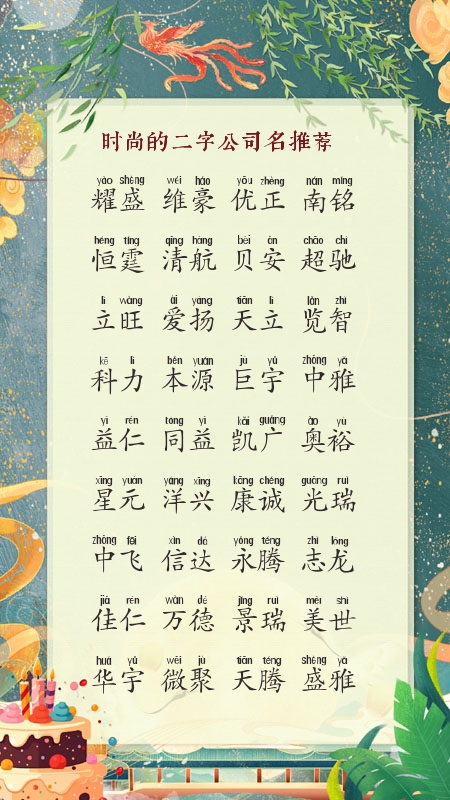 时尚的二字公司名推荐
yào shèng wéi háo yōu zhèng nán míng
耀盛 维豪 优正 南铭
héng tíng qīng háng bèi ān chāo chí
恒霆 清航 贝安 超驰
lì wàng ài yáng tiān lì lǎn zhì
立旺 爱扬 天立 览智
kē lì běn yuán jù yǔ zhōng yǎ
科力 本源 巨宇 中雅
yì rén tóng yì kǎi guǎng ào yù
益仁 同益 凯广 奥裕
xīng yuán yáng xīng kāng chéng guāng ruì
星元 洋兴 康诚 光瑞
zhōng fēi xìn dá yǒng téng zhì lóng
中飞 信达 永腾 志龙
jiā rén wàn dé jǐng ruì měi shì
佳仁 万德 景瑞 美世
huá yǔ wēi jù tiān téng shèng yǎ
华宇 微聚 天腾 盛雅